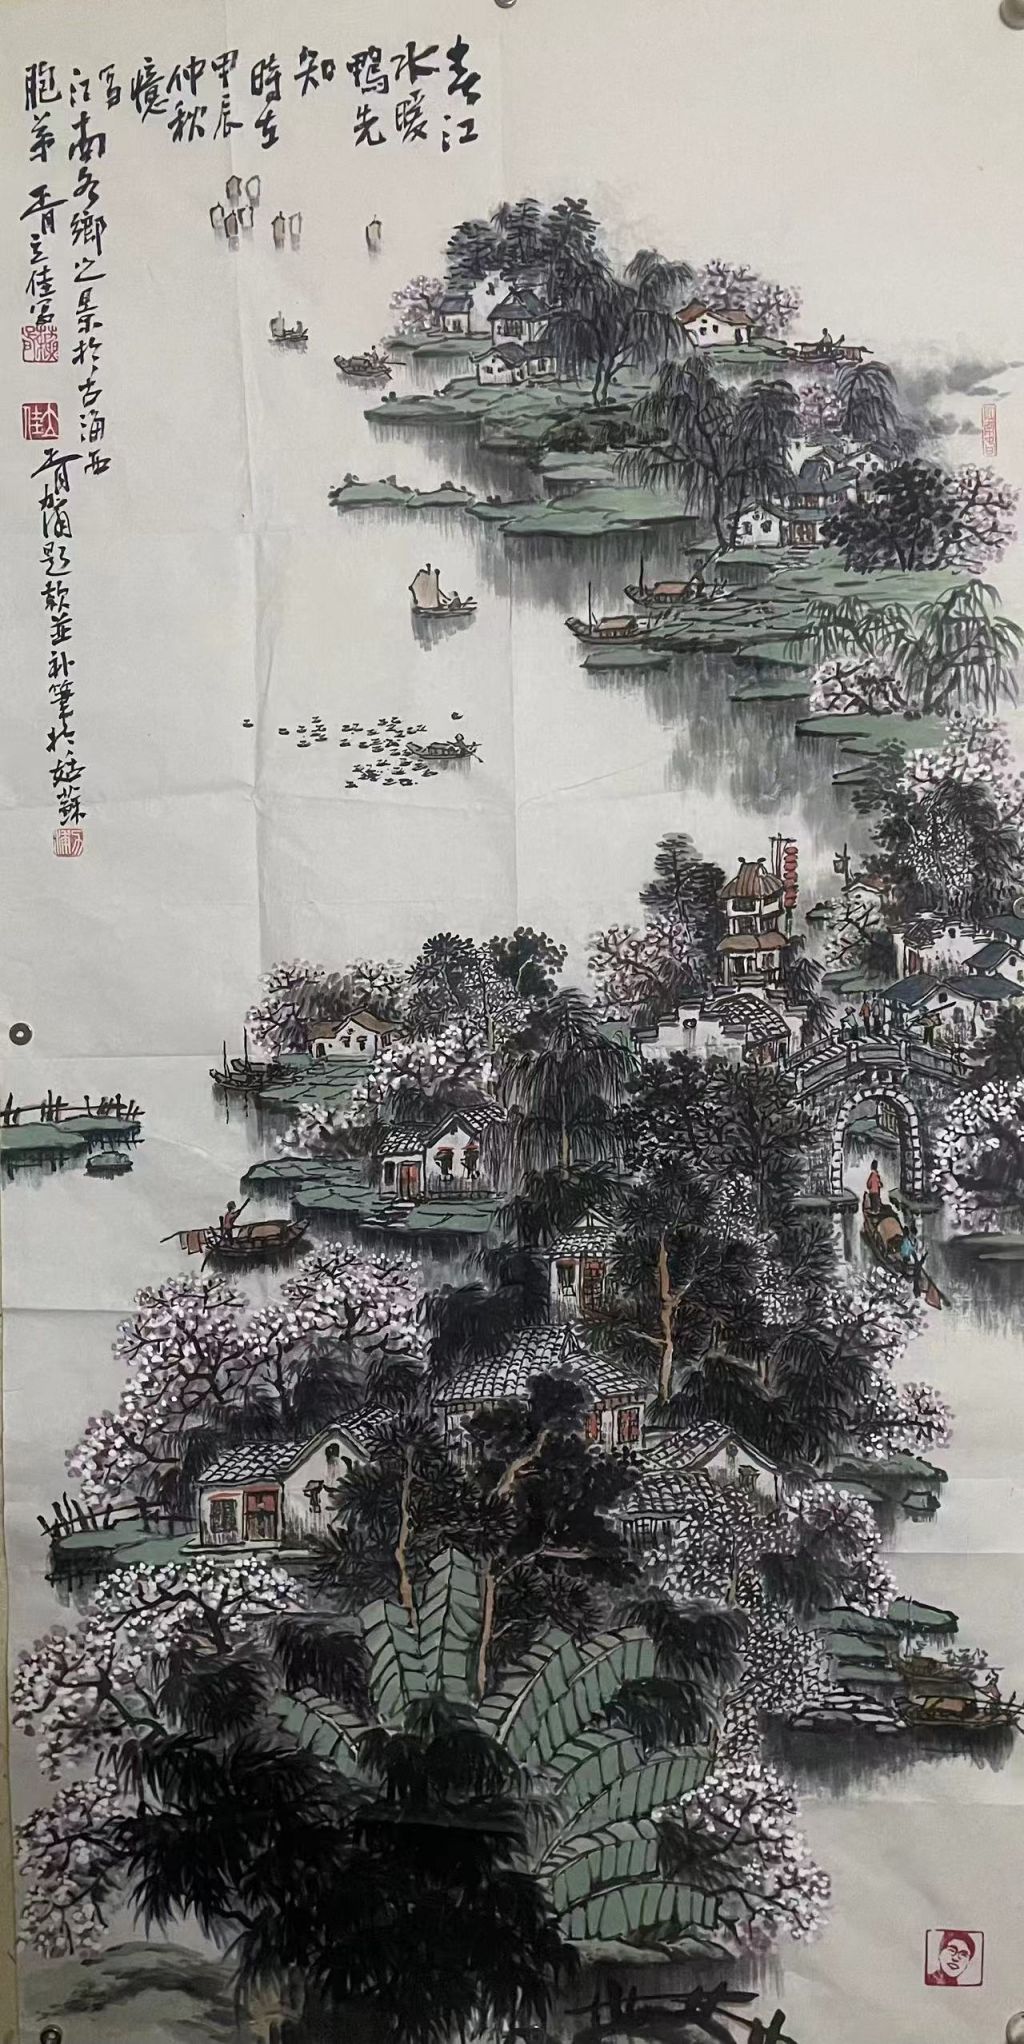 春江
水暖
鴨先
知
時在
甲辰
仲秋
憶
寫
江南水鄉之景於古海西
胞弟 胥立佳寫
胥 題款並补筆於姑蘇
立佳